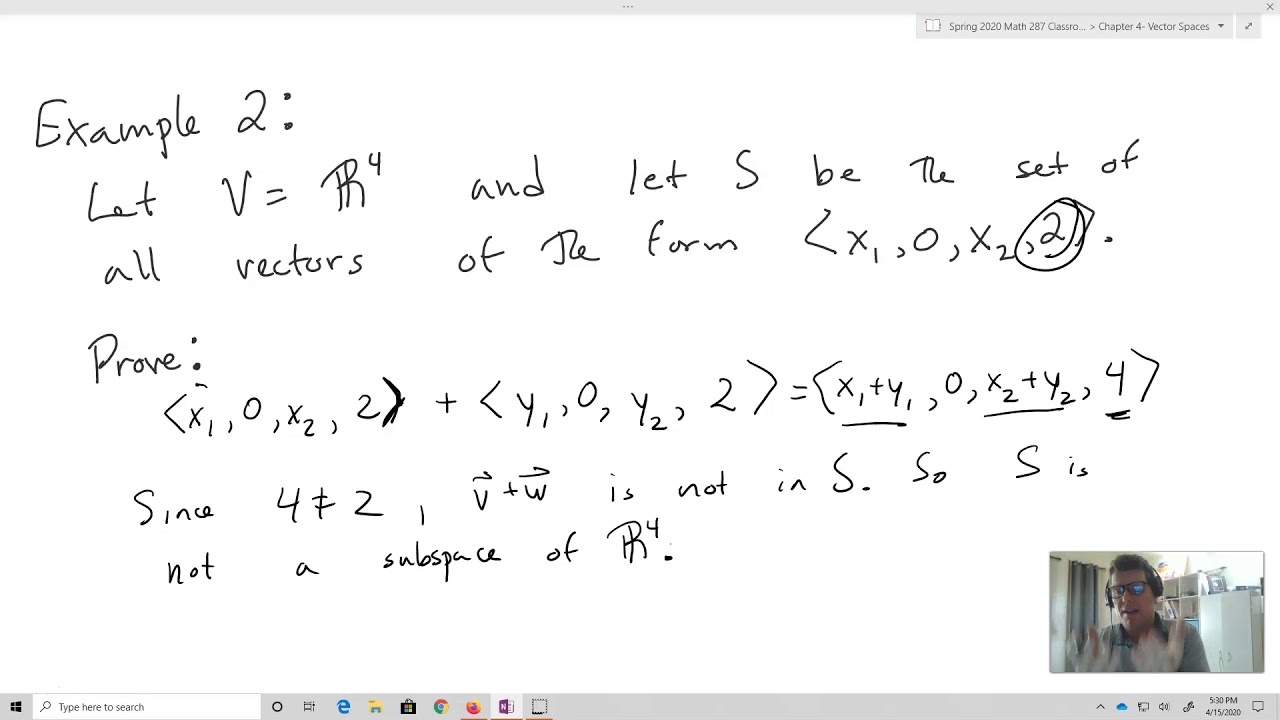 Spring 2020 Math 287 Classro... > Chapter 4- Vector Spaces
Example 2:
Let V = ℝ⁴ and let S be the set of
all vectors of the form <x₁, 0, x₂, 2>.
Prove:
<x₁, 0, x₂, 2> + <y₁, 0, y₂, 2> = <x₁+y₁, 0, x₂+y₂, 4>
Since 4 ≠ 2, v⃗ + w⃗ is not in S. So S is
not a subspace of ℝ⁴.
Type here to search
5:30 PM
4/15/2020